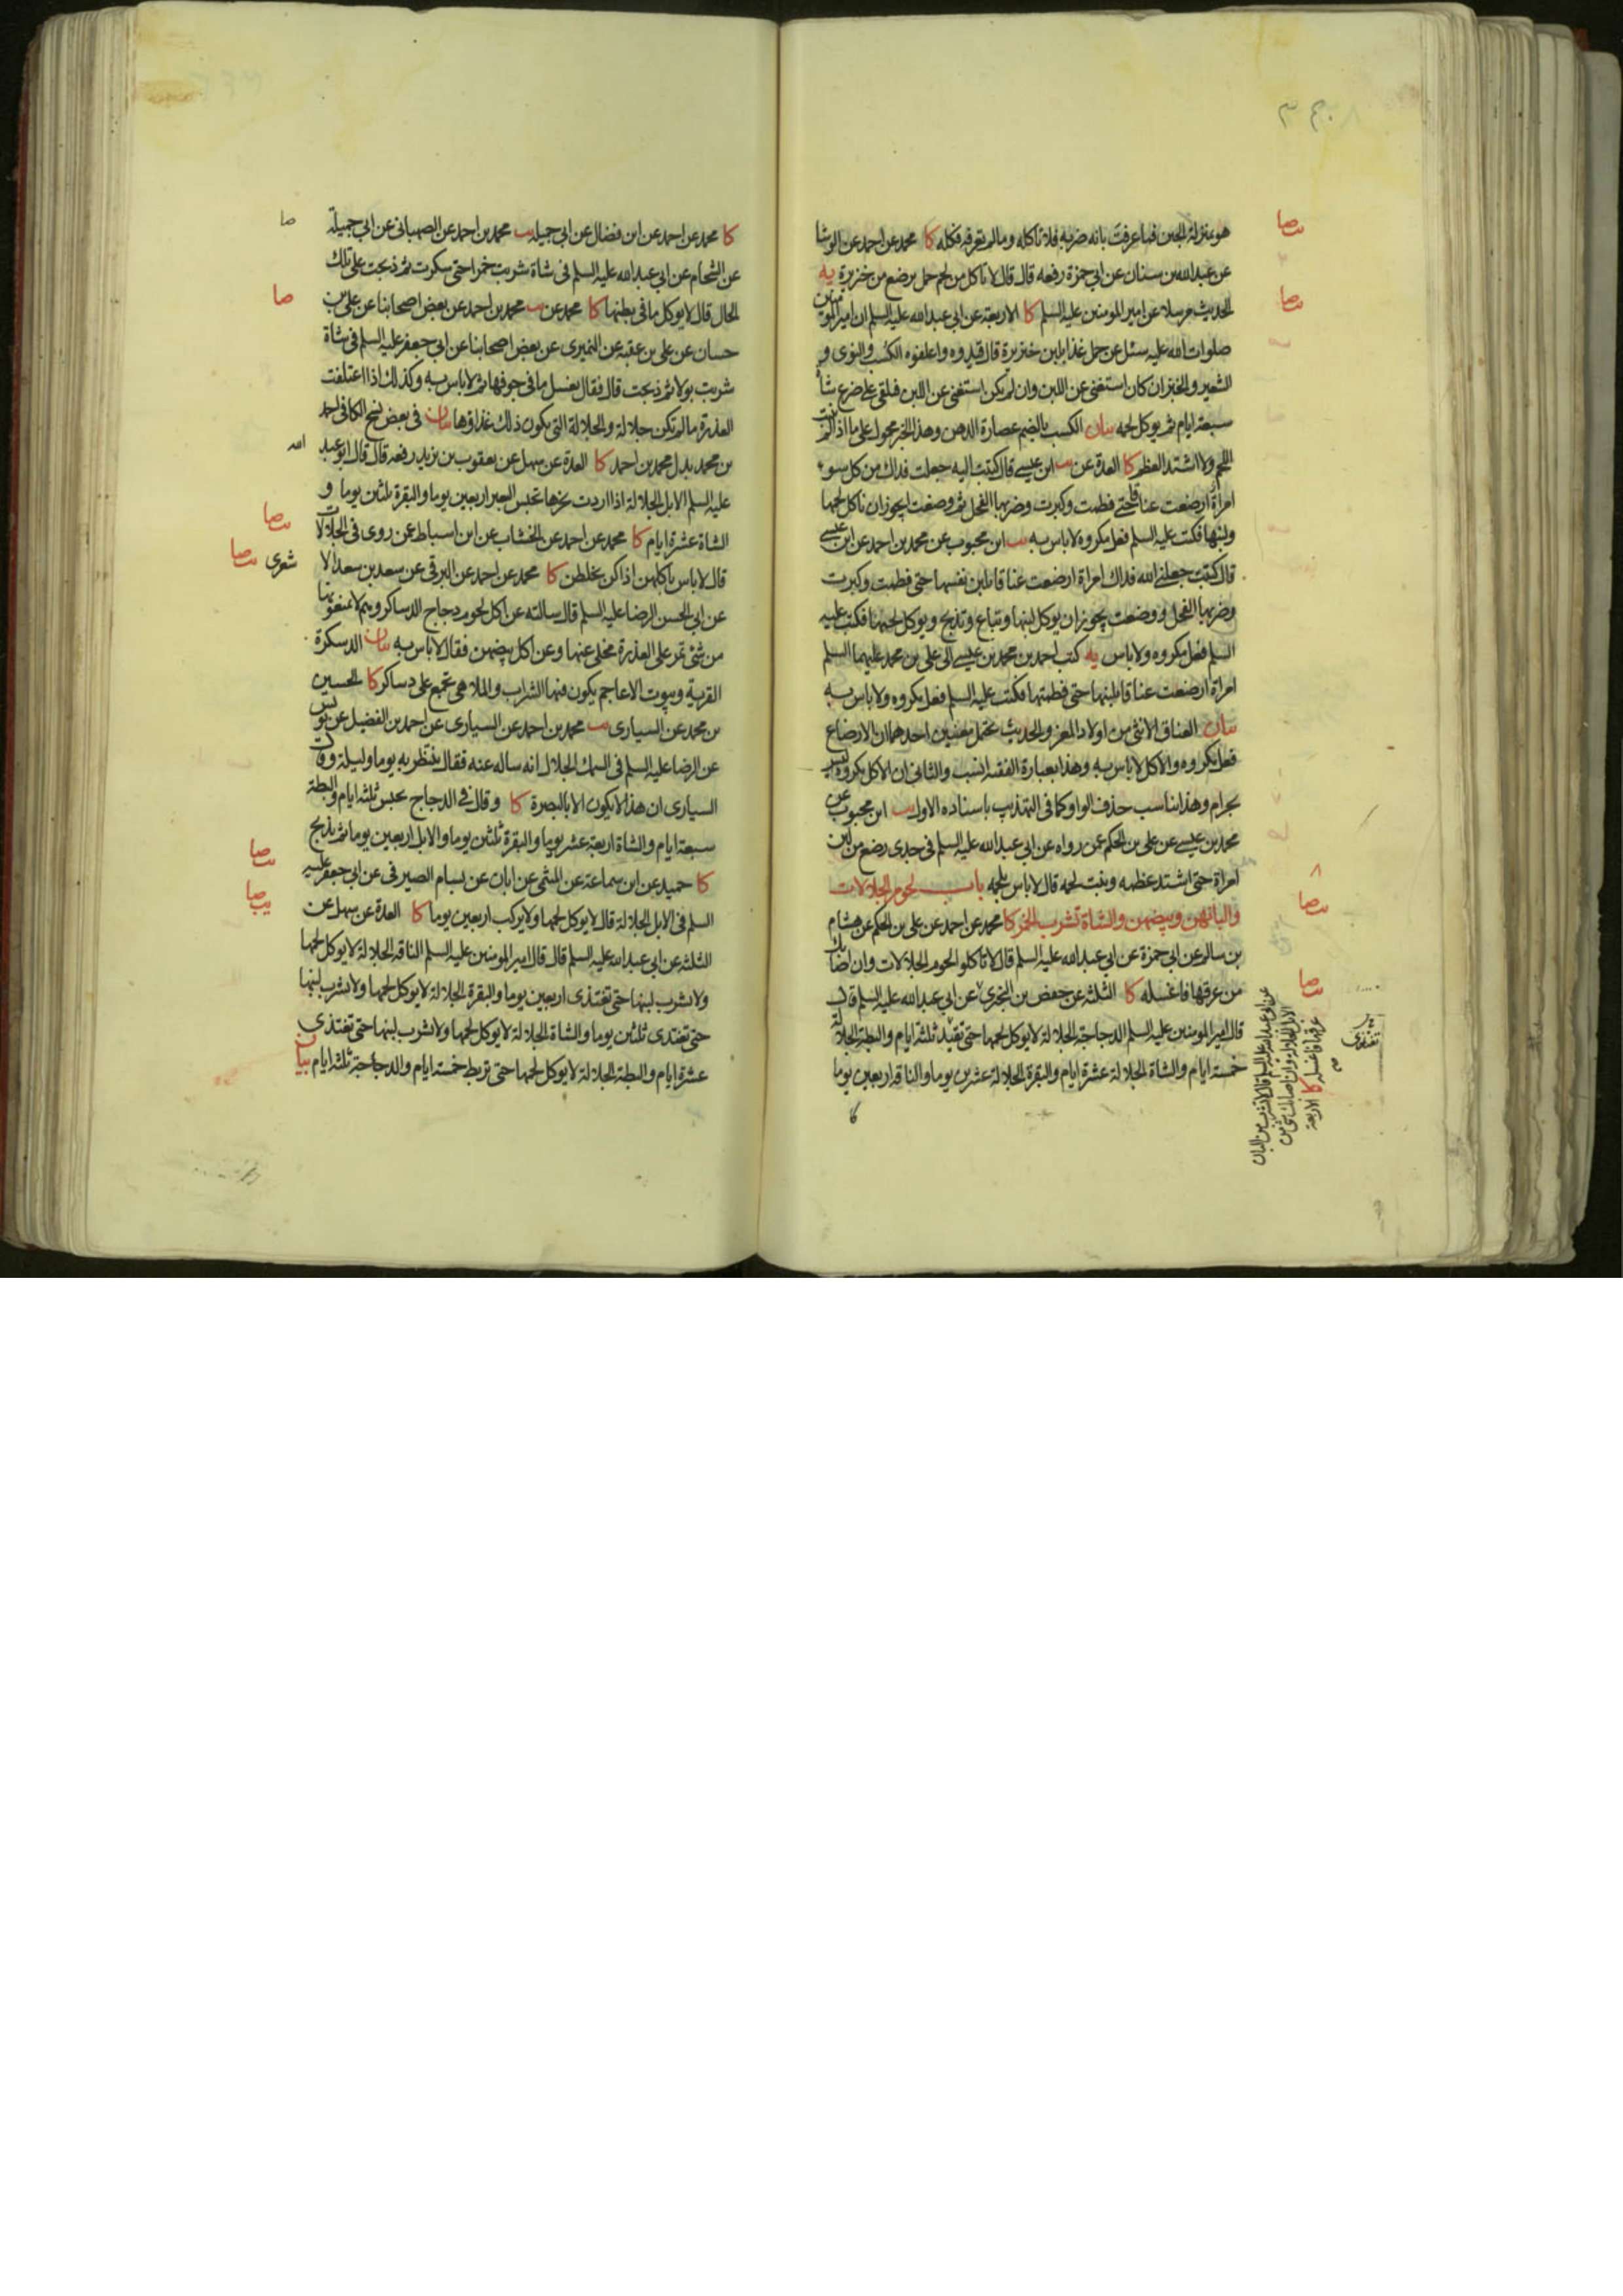 هو بمنزلة الجبن فما عرفت بانه ضربه فلا تاكله وما لم تعرفه فكله كا محمد عن احمد عن الوشا
عن عبد الله بن سنان عن ابي حمزة رفعه قال قال لا تاكل من لحم حمل يرضع من خنزيرة يه
الحديث مرسلا عن امير المومنين عليه السلم كا الاربعة عن ابي عبد الله عليه السلم ان امير المومنين
صلوات الله عليه سئل عن حمل غذا بلبن خنزيرة قال قيدوه واعلفوه الكسب والنوى و
الشعير والخبز ان كان استغنى عن اللبن وان لم يكن استغنى عن اللبن فيلقى على ضرع شاة
سبعة ايام ثم يوكل لحمه بيان الكسب بالضم عصارة الدهن وهذا الخبر محمول على ما اذا لم ينبت
اللحم ولا اشتد العظم كا العدة عن يب ابن عيسى قال كتبت اليه جعلت فداك من كل سوء
امراة ارضعت عناقا حتى فطمت وكبرت وضربها الفحل ثم وضعت ايجوز ان ناكل لحمها
ولبنها فكتب عليه السلم فعل مكروه لا باس به يب ابن محبوب عن محمد بن احمد عن ابن عيسى
قال كتبت جعلني الله فداك امراة ارضعت عناقا بلبن نفسها حتى فطمت وكبرت
وضربها الفحل ووضعت يجوز ان يوكل لبنها وتباع وتذبح ويوكل لحمها فكتب عليه
السلم فعل مكروه ولا باس يه كتب احمد بن محمد بن عيسى الى علي بن محمد عليهما السلم
امراة ارضعت عناقا بلبنها حتى فطمتها فكتب عليه السلم فعل مكروه ولا باس به
بيان العناق الانثى من اولاد المعز والحديث يحتمل معنيين احدهما ان الارضاع
فعل مكروه والاكل لا باس به وهذا بعبارة الفقيه انسب والثاني ان الاكل مكروه ليس
بحرام وهذا يناسب حذف الواو كما في التهذيب باسناده الاول يب ابن محبوب عن
محمد بن عيسى عن علي بن الحكم عمن رواه عن ابي عبد الله عليه السلم في جدي رضع من لبن
امراة حتى اشتد عظمه ونبت لحمه قال لا باس بلحمه باب لحوم الجلالات
والبانهن وبيضهن والشاة تشرب الخمر كا محمد عن احمد عن علي بن الحكم عن هشام
بن سالم عن ابي حمزة عن ابي عبد الله عليه السلم قال لا تاكلوا لحوم الجلالات وان اصابك
من عرقها فاغسله كا الثلثة عن حفص بن البختري عن ابي عبد الله عليه السلم قال
عن ابي عبد الله عليه السلم قال لا تشرب من البان
الابل الجلالة وان اصابك شئ من
عرقها فاغسله كا الاربعة
تغتذي
قال امير المومنين عليه السلم الدجاجة الجلالة لا يوكل لحمها حتى تقيد ثلثة ايام والبطة الجلالة
خمسة ايام والشاة الجلالة عشرة ايام والبقرة الجلالة عشرين يوما والناقة اربعين يوما
كا
كا محمد عن احمد عن ابن فضال عن ابي جميلة يب محمد بن احمد عن الصهباني عن ابي جميلة
عن الشحام عن ابي عبد الله عليه السلم في شاة شربت خمرا حتى سكرت ثم ذبحت على تلك
الحال قال لا يوكل ما في بطنها كا محمد عن يب محمد بن احمد عن بعض اصحابنا عن علي بن
حسان عن علي بن عقبة عن النميري عن بعض اصحابنا عن ابي جعفر عليه السلم في شاة
شربت بولا ثم ذبحت قال فقال يغسل ما في جوفها ثم لا باس به وكذلك اذا اعتلفت
العذرة ما لم تكن جلالة والجلالة التي يكون ذلك غذاؤها بيان في بعض نسخ الكافي احمد
بن محمد بدل محمد بن احمد كا العدة عن سهل عن يعقوب بن يزيد رفعه قال قال ابو عبد الله
عليه السلم الابل الجلالة اذا اردت نحرها تحبس البعير اربعين يوما والبقرة ثلثين يوما و
الشاة عشرة ايام كا محمد عن احمد عن الخشاب عن ابن اسباط عمن روى في الجلالات
قال لا باس باكلهن اذا كن يخلطن كا محمد عن احمد عن البرقي عن سعد بن سعد الاشعري
عن ابي الحسن الرضا عليه السلم قال سالته عن اكل لحوم دجاج الدساكر وهم لا يمنعونها
من شئ تمر على العذرة مخلى عنها وعن اكل بيضهن فقال لا باس به بيان الدسكرة
القرية وبيوت الاعاجم يكون فيها الشراب والملاهي تجمع على دساكر كا الحسين
بن محمد عن السياري يب محمد بن احمد عن السياري عن احمد بن الفضيل عن يونس
عن الرضا عليه السلم في السمك الجلال انه ساله عنه فقال ينتظر به يوما وليلة وقال
السياري ان هذا لا يكون الا بالبصرة كا وقال في الدجاج يحبس ثلثة ايام والبطة
سبعة ايام والشاة اربعة عشر يوما والبقرة ثلثين يوما والابل اربعين يوما ثم يذبح
كا حميد عن ابن سماعة عن الميثمي عن ابان عن بسام الصيرفي عن ابي جعفر عليه
السلم في الابل الجلالة قال لا يوكل لحمها ولا يركب اربعين يوما كا العدة عن سهل عن
الثلثة عن ابي عبد الله عليه السلم قال قال امير المومنين عليه السلم الناقة الجلالة لا يوكل لحمها
ولا يشرب لبنها حتى تغتذى اربعين يوما والبقرة الجلالة لا يوكل لحمها ولا يشرب لبنها
حتى تغتذى ثلثين يوما والشاة الجلالة لا يوكل لحمها ولا يشرب لبنها حتى تغتذى
عشرة ايام والبطة الجلالة لا يوكل لحمها حتى تربط خمسة ايام والدجاجة ثلثة ايام بيان